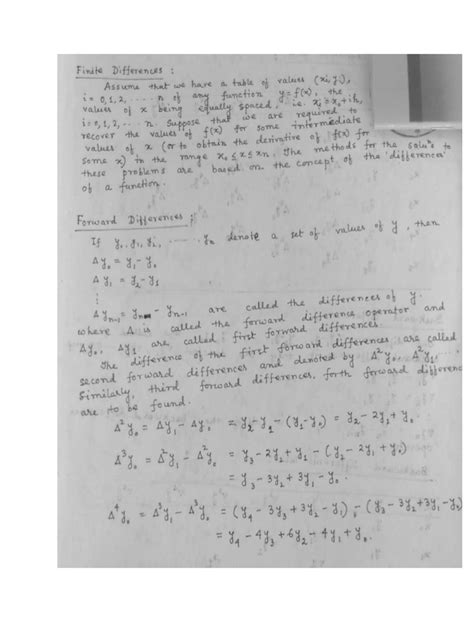 Finite Differences :
Assume that we have a table of values (xi, yi),
i = 0, 1, 2, ..... n of any function y = f(x), the
values of x being equally spaced, i.e. xi = x0 + ih,
i = 0, 1, 2, ... n. Suppose that we are required to
recover the values of f(x) for some intermediate
values of x (or to obtain the derivative of f(x) for
some x) in the range x0 ≤ x ≤ xn, The methods for the to
these problems are based on the concept of the 'differences'
of a function.
Forward Differences :
If y0, y1, y2, ...... yn denote a set of values of y, then
Δy0 = y1 - y0
Δy1 = y2 - y1
⋮
Δyn-1 = yn - yn-1 are called the differences of y.
where Δ is called the forward difference operator and
Δy0, Δy1 are called first forward differences
The difference of the first forward differences are called
second forward differences and denoted by Δ²y0, Δ²y1.
Similarly, third forward differences, forth forward differenc
are to be found.
Δ²y0 = Δy1 - Δy0 = y2 - y1 - (y1 - y0) = y2 - 2y1 + y0
Δ³y0 = Δ²y1 - Δ²y0 = y3 - 2y2 + y1 - (y2 - 2y1 + y0)
= y3 - 3y2 + 3y1 - y0
Δ⁴y0 = Δ³y1 - Δ³y0 = (y4 - 3y3 + 3y2 - y1) - (y3 - 3y2 + 3y1 - y0)
= y4 - 4y3 + 6y2 - 4y1 + y0